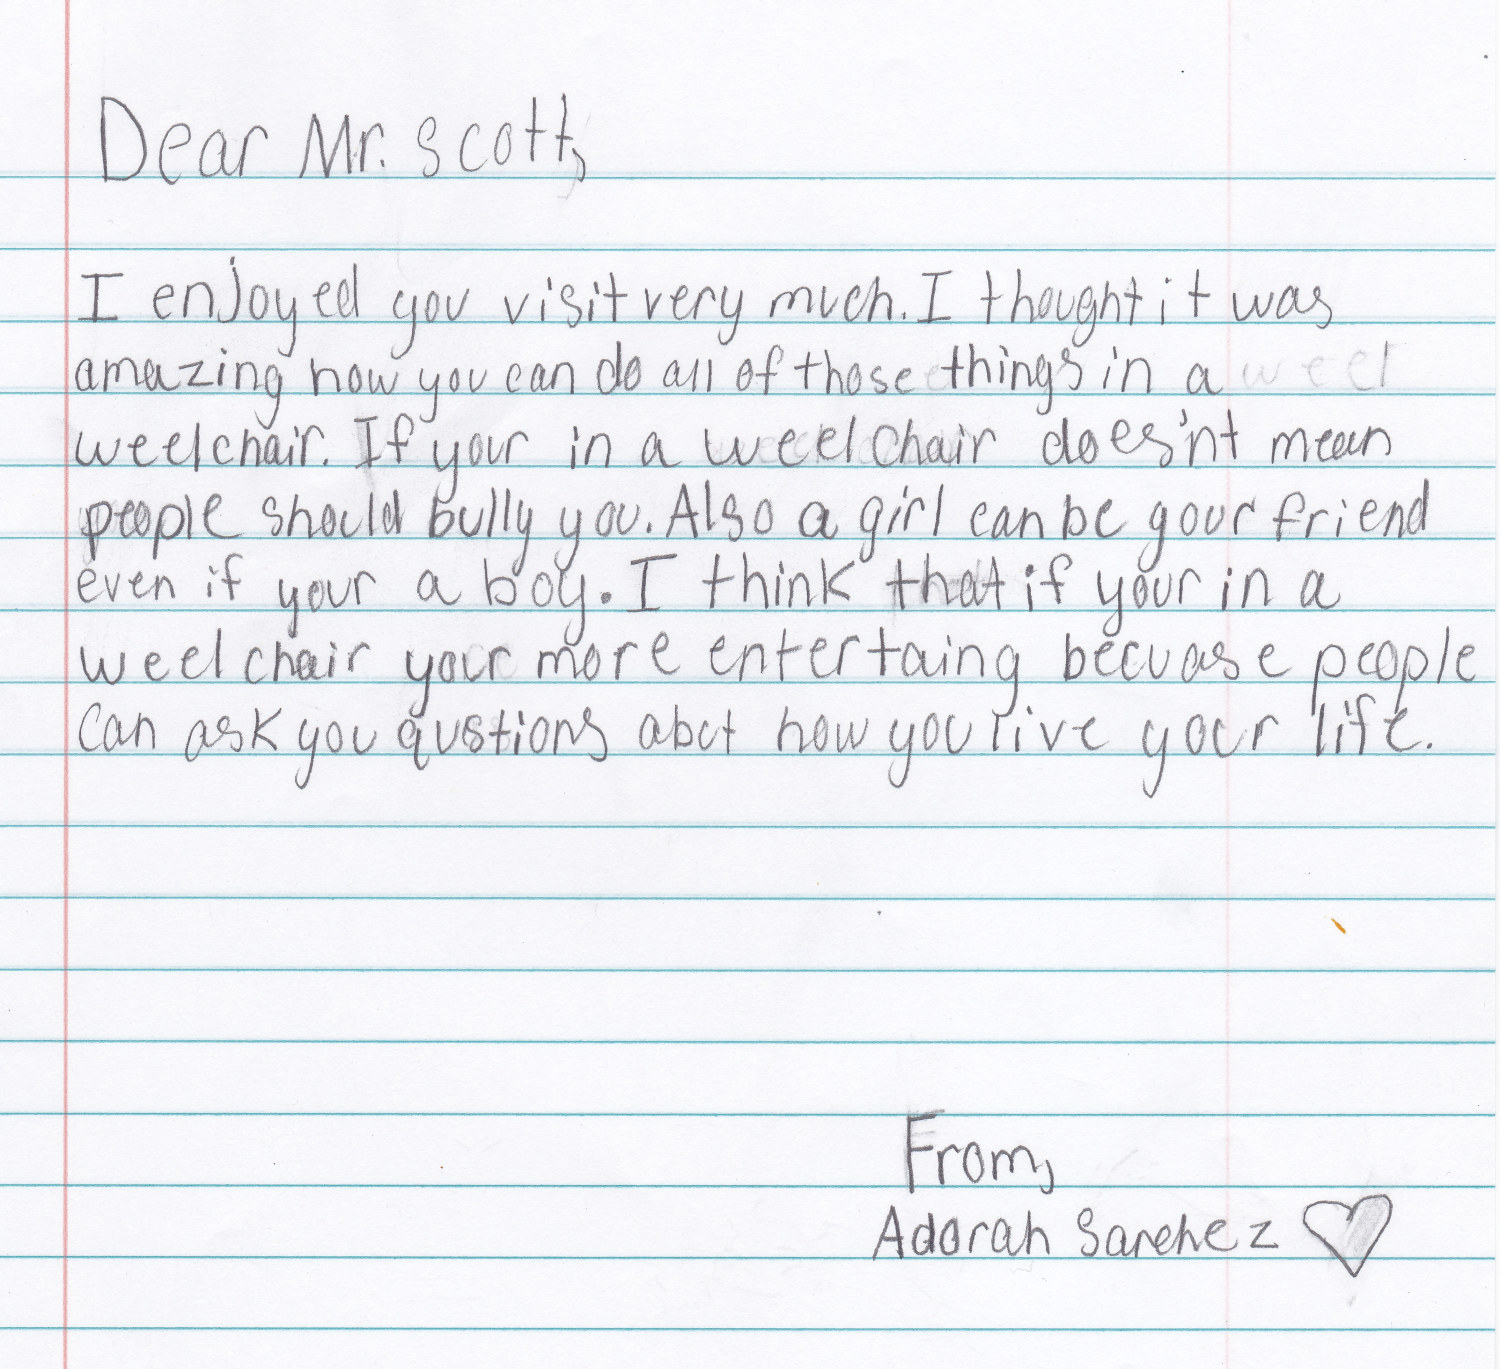 Dear Mr. Scott,
I enjoyed you visit very much. I thought it was
amazing how you can do all of those things in a
weelchair. If your in a weelchair does'nt mean
people should bully you. Also a girl can be your friend
even if your a boy. I think that if your in a
weelchair your more entertaing becuase people
can ask you qustions abct how you live your life.
From,
Adorah Sanchez